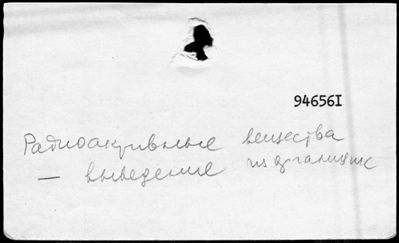 94656I
Радиоактивные вещества
— выведение из организма